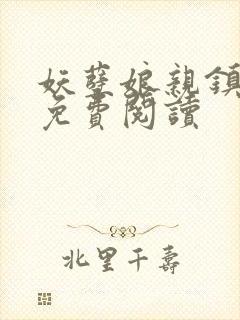 妖孽娘親鎮
免費閱讀
北里千壽